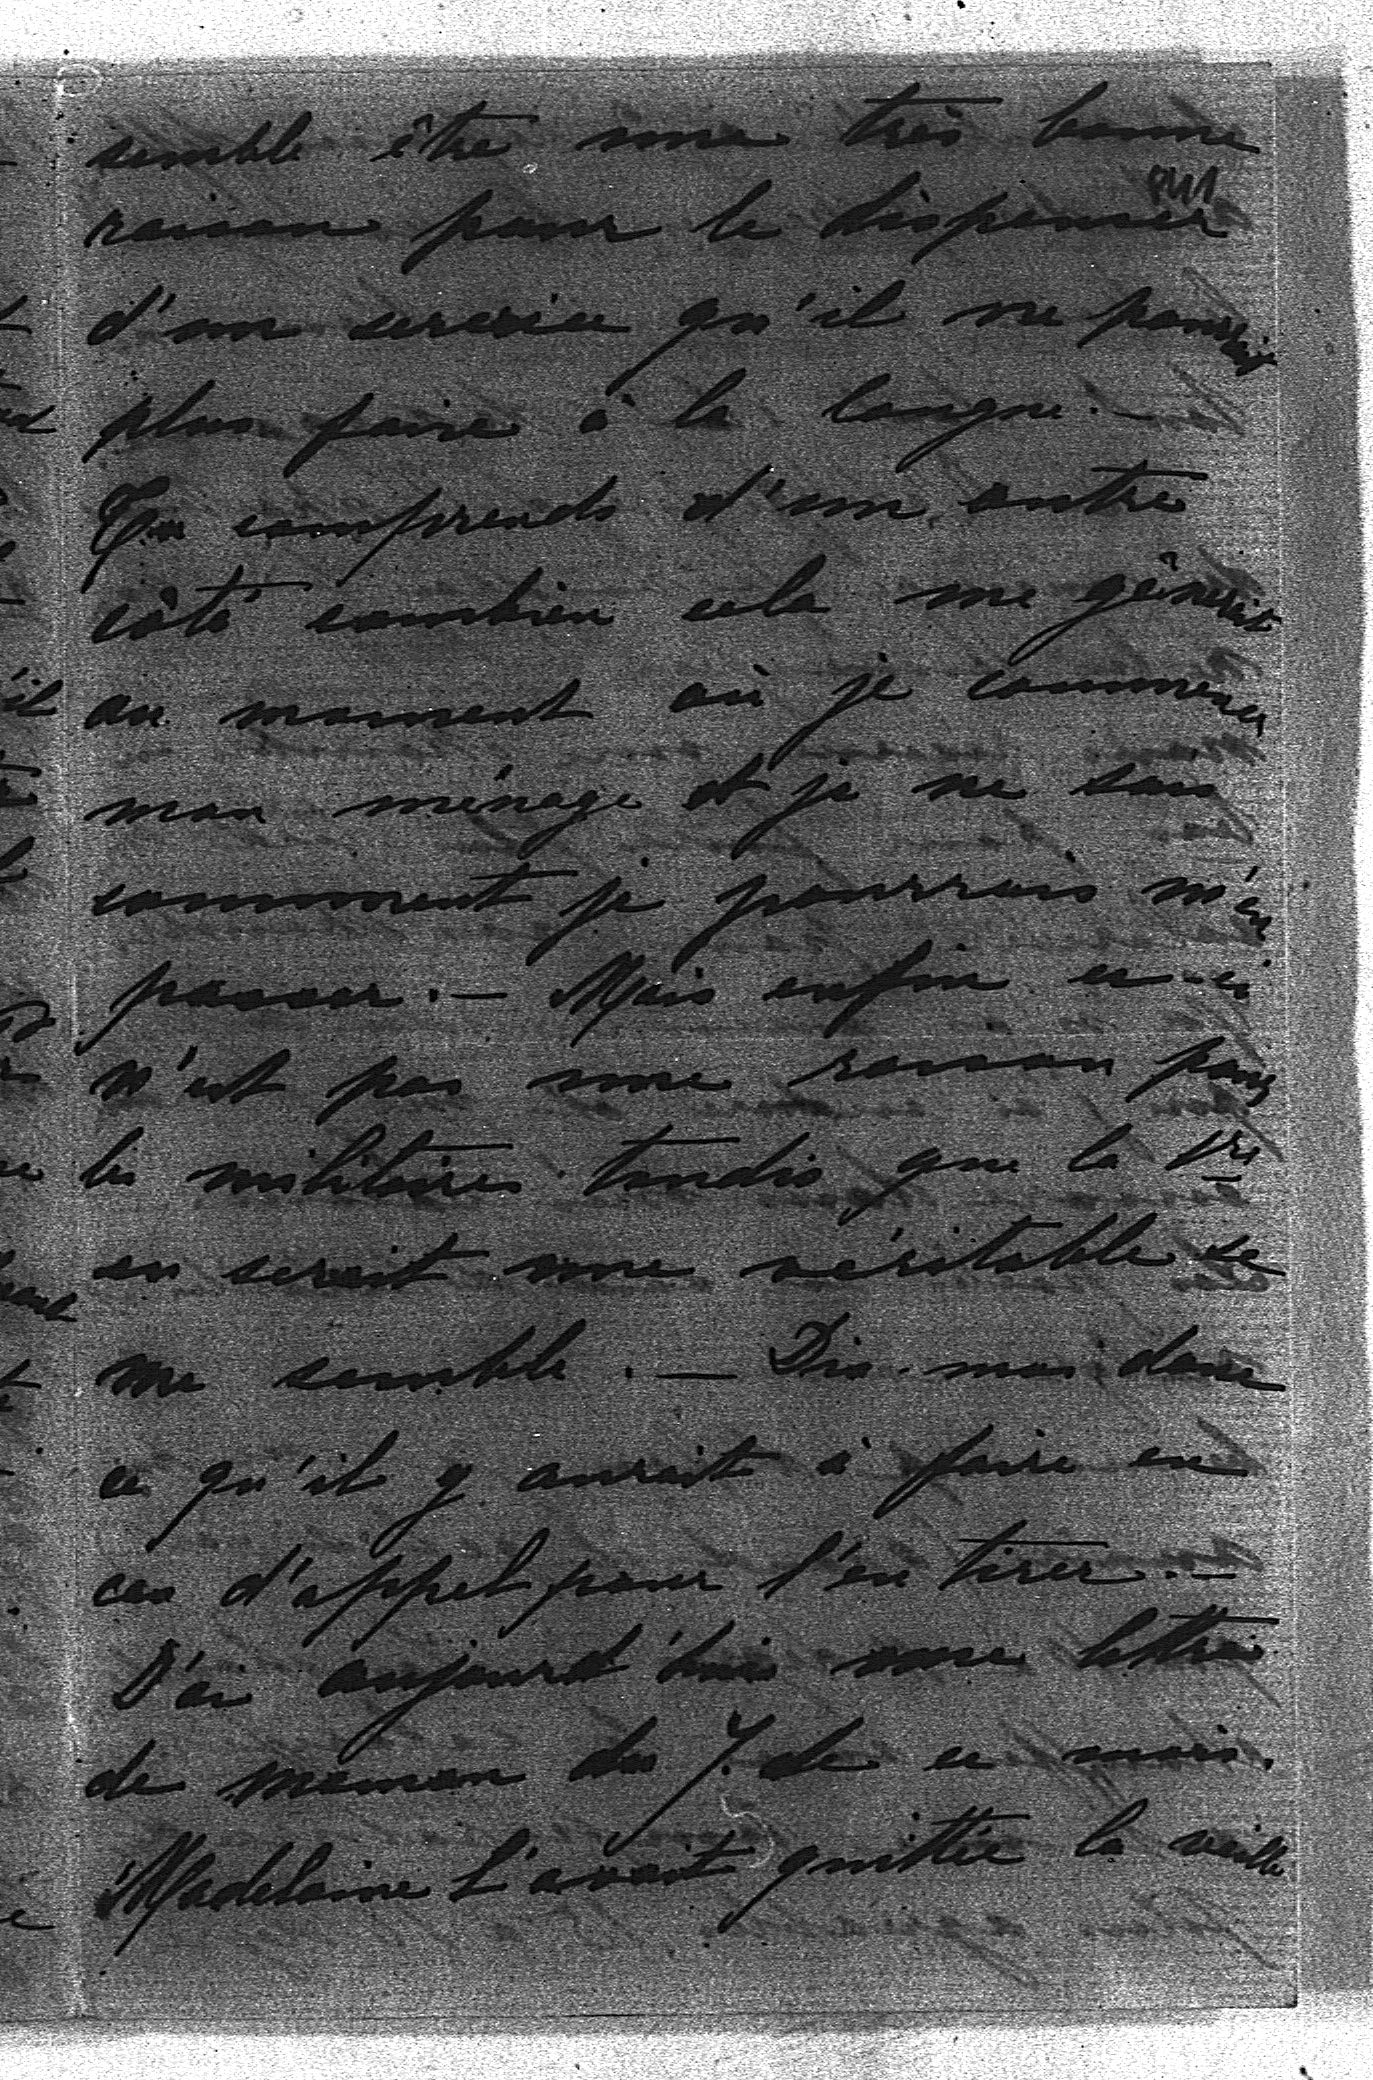 semble être une très bonne
841
raison pour le dispenser
d'un service qu'il ne pourrait
plus faire à la longue. —
Tu comprends d'un autre
côté combien cela me gênerait
au moment où je commence
mon ménage et je ne sais
comment je pourrais m'en
passer. — Mais enfin ceci
n'est pas une raison pour
les militaires tandis que la 1re
en serait une véritable ce
me semble. — Dis-moi donc
ce qu'il y aurait à faire en
cas d'appel pour l'en tirer. —
J'ai aujourd'hui une lettre
de maman du 7 de ce mois.
Madeleine l'avait quittée la veille